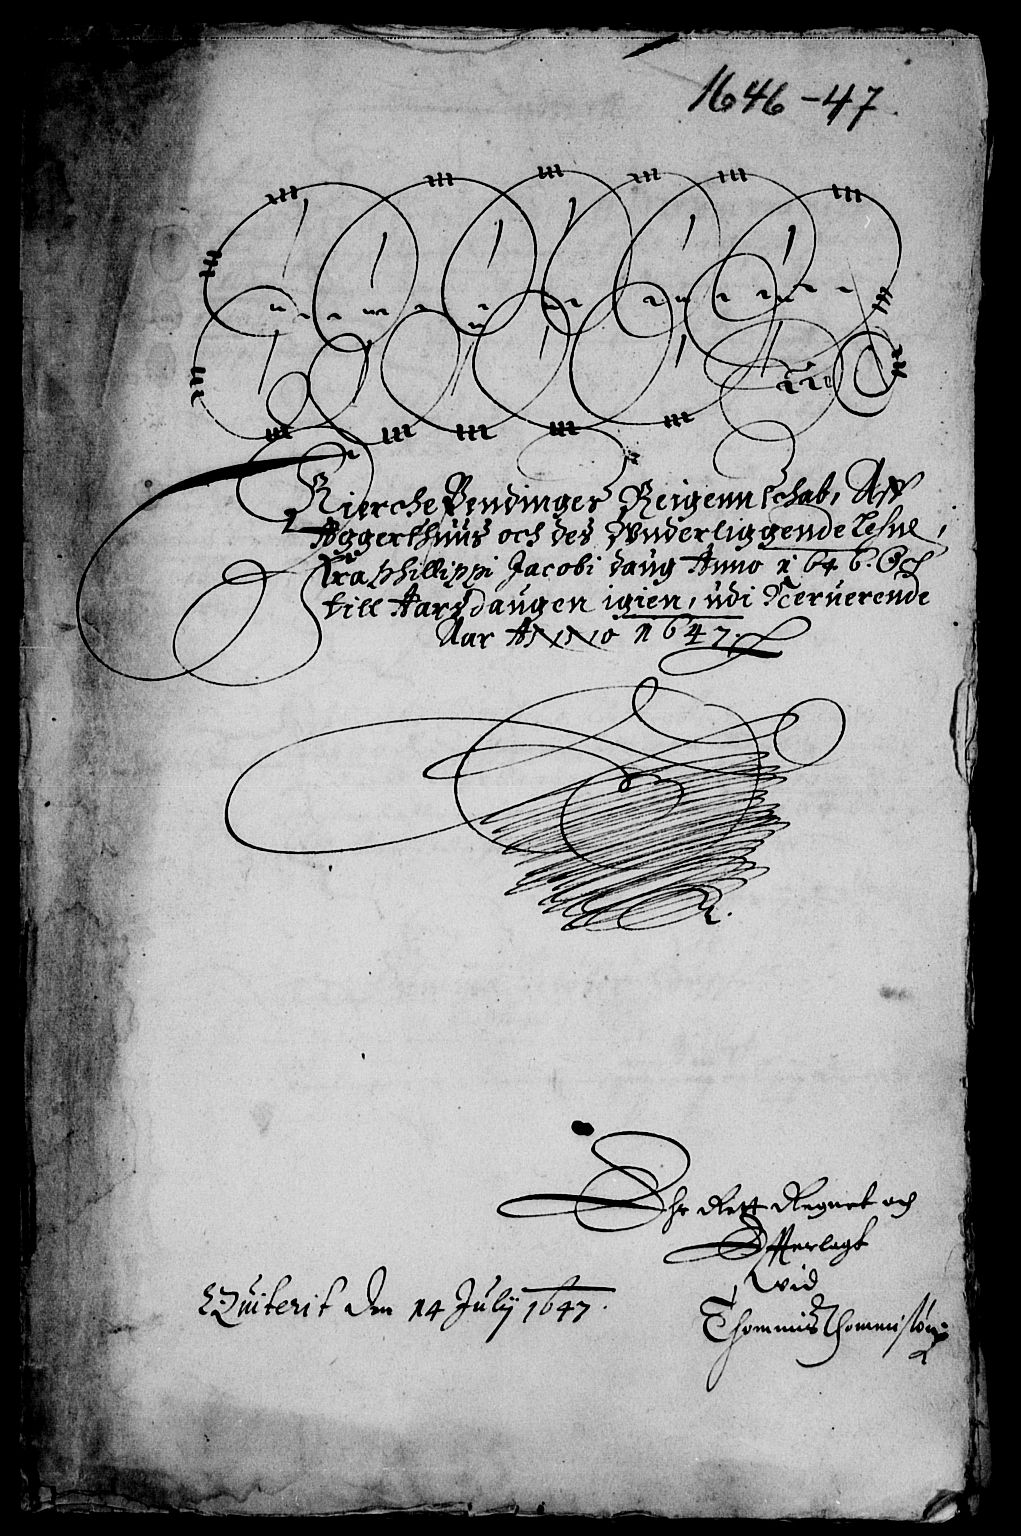 1646-47
Kierche Pendinges Reigennschab, Aff
Aggershuus och des Vnderliggende Lehne,
Fra Phillippi Jacobi daug Anno 1646. Och
till Aarsdaugen igien, udi Neruerende
Aar Anno 1647.
Ehr Rett Regnet och
Offuerlagt
Wid
Thommis Thommisøn
Quiterit den 14 July 1647.